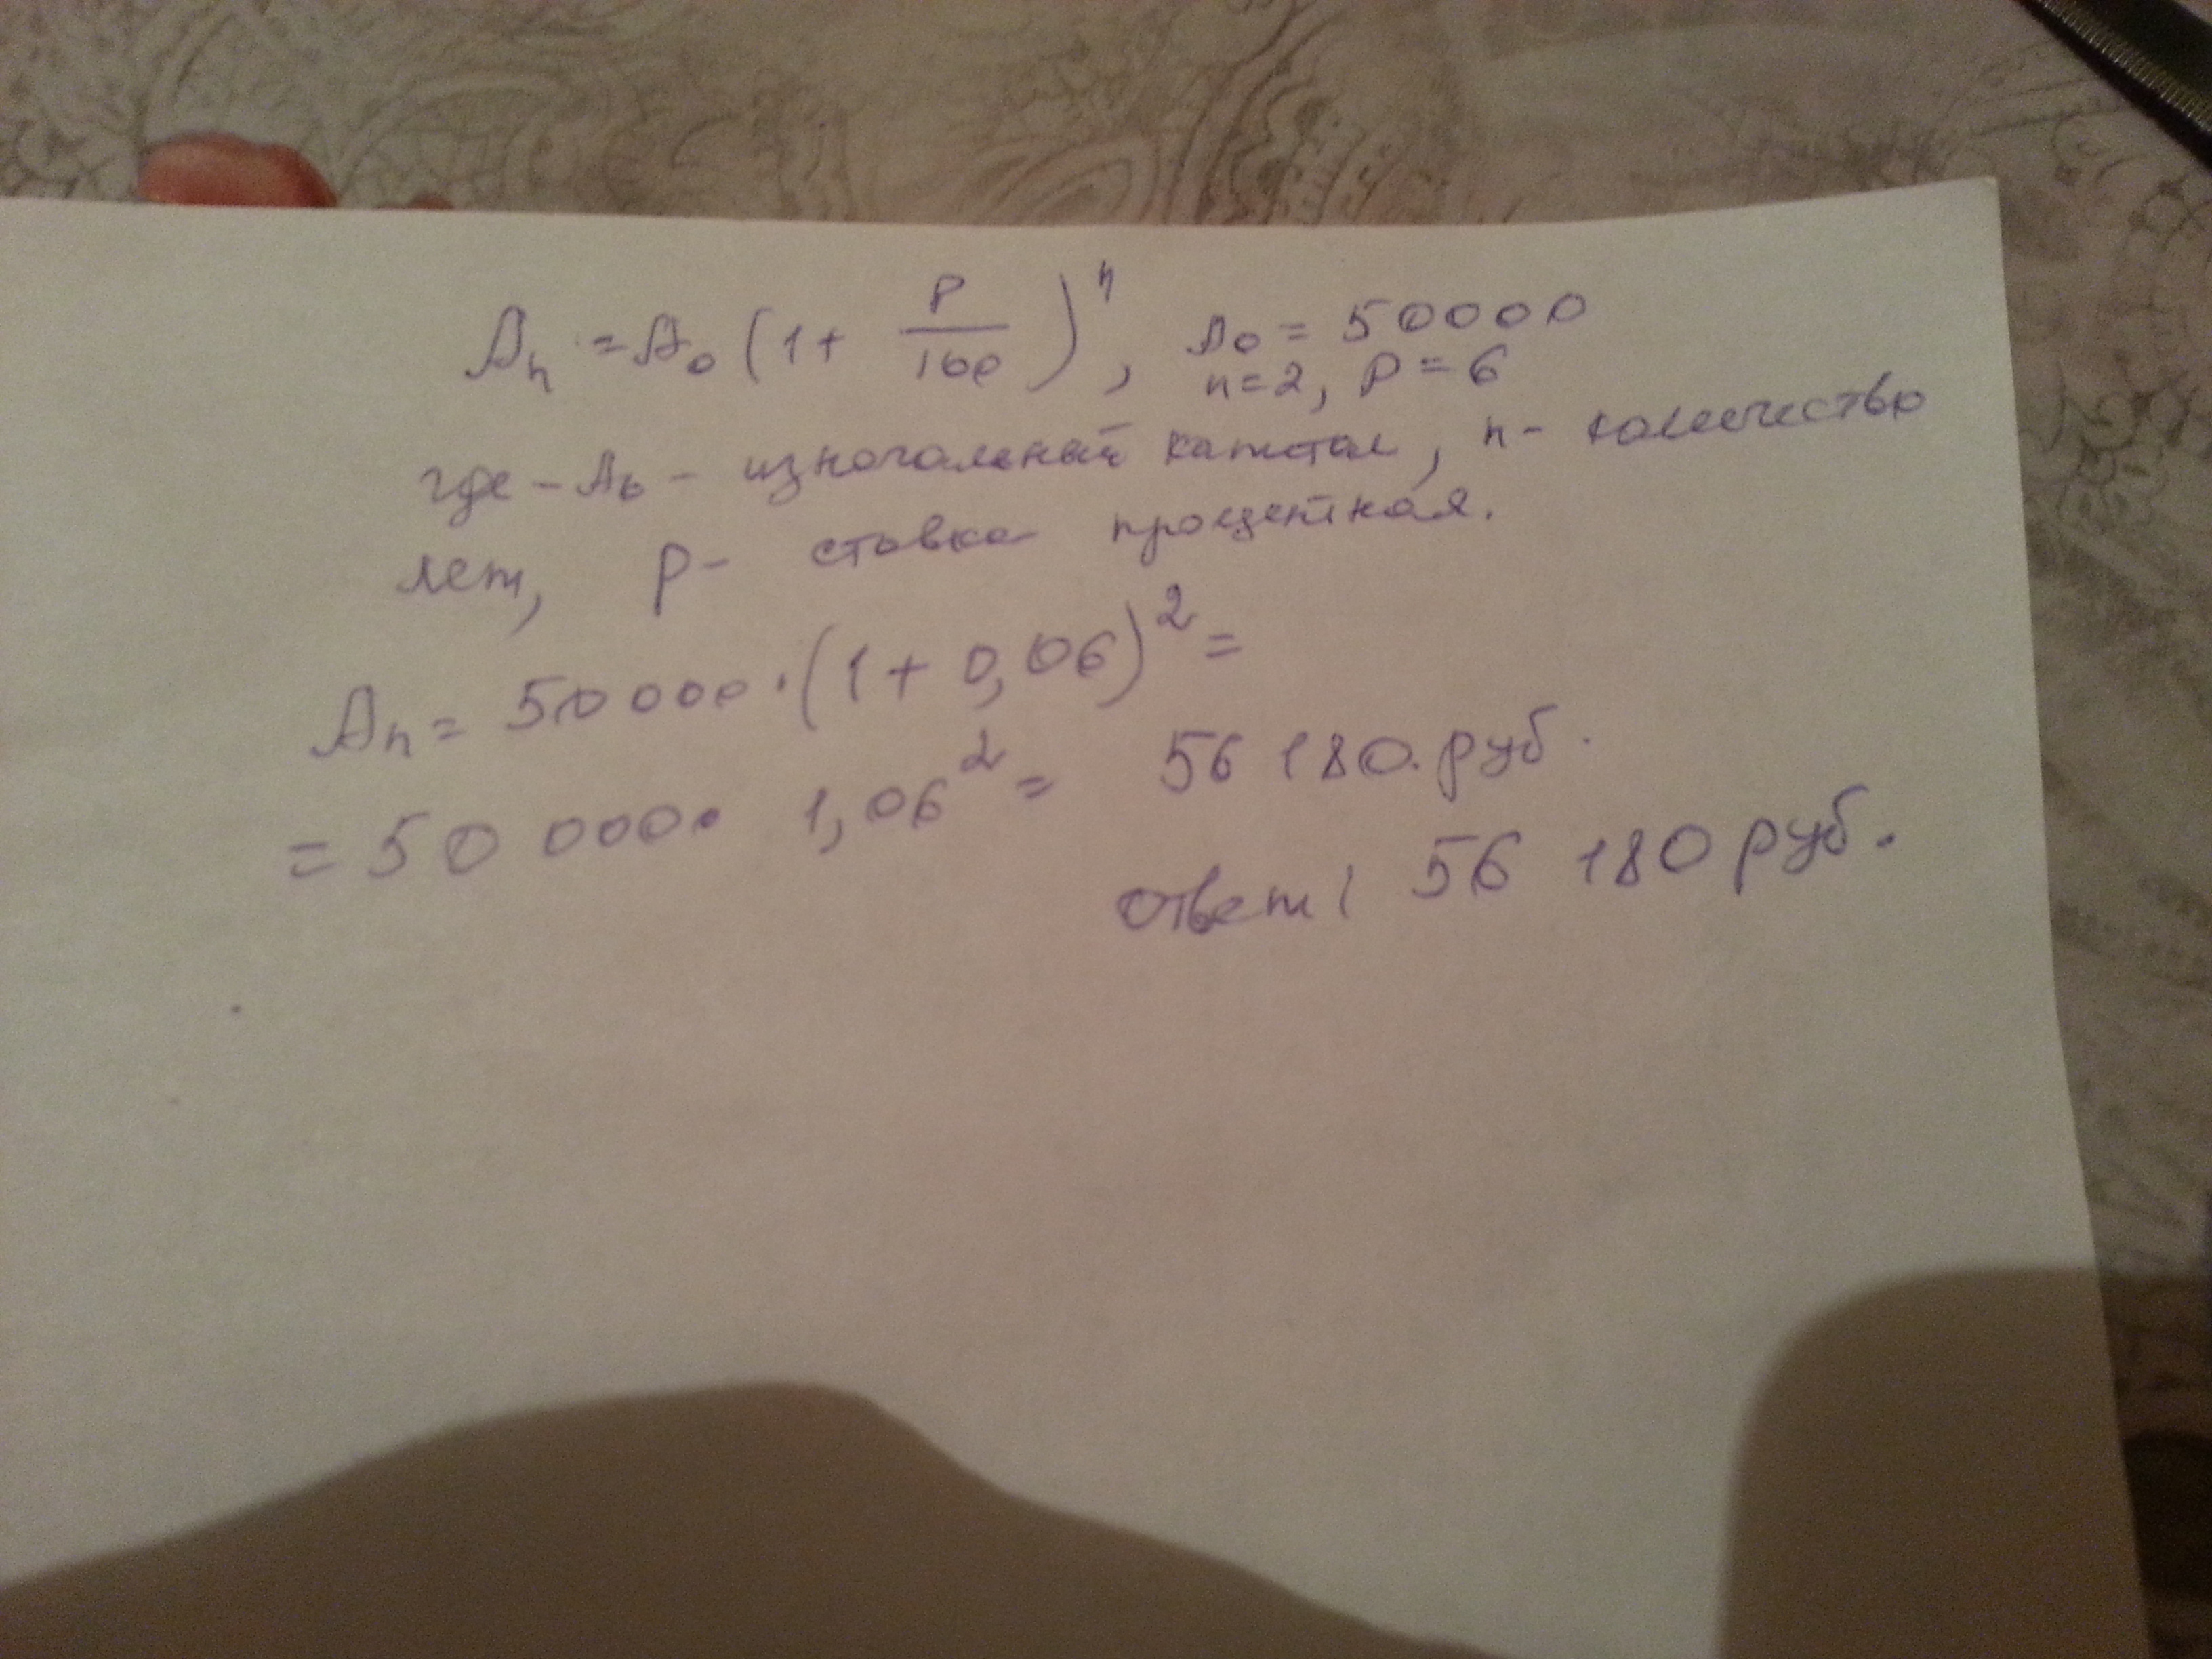 Aₙ = A₀ (1 + P/100)ⁿ, A₀ = 50000
n=2, P=6
где - A₀ - изначальный капитал, n - количество
лет, p - ставка процетная.
Aₙ = 50 000 · (1 + 0,06)² =
= 50 000 · 1,06² = 56 180. руб.
ответ: 56 180 руб.